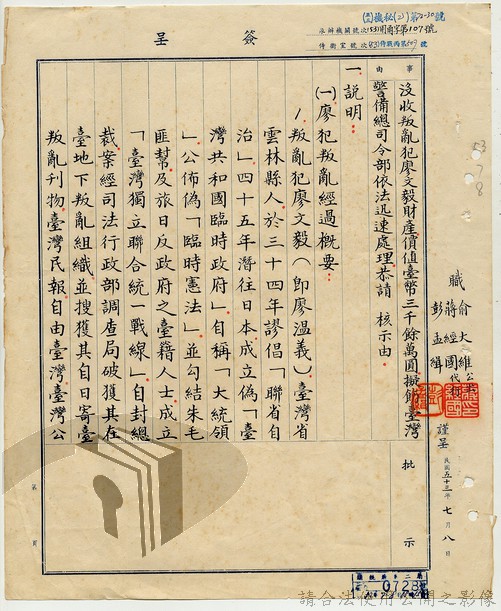 簽呈
承辦機關號次(53)用甫字第107號
事由
沒收叛亂犯廖文毅財產價值臺幣三千餘萬圓擬飭臺灣
警備總司令部依法迅速處理恭請 核示由
一、說明：
(一)廖犯叛亂經過概要：
1.叛亂犯廖文毅(即廖溫義)臺灣省
雲林縣人於三十四年謬倡「聯省自
治」四十五年潛往日本成立偽「臺
灣共和國臨時政府」自稱「大統領
」公佈偽「臨時憲法」並勾結朱毛
匪幫及旅日反政府之臺籍人士成立
「臺灣獨立聯合統一戰線」自封總
裁案經司法行政部調查局破獲其在
臺地下叛亂組織並搜獲其自日寄臺
叛亂刊物臺灣民報自由臺灣臺灣公
職
俞大維
蔣經國代
彭孟緝
謹呈
民國五十三年七月八日
批示
53 7 8
第 頁
072
請合法使用公開之影像